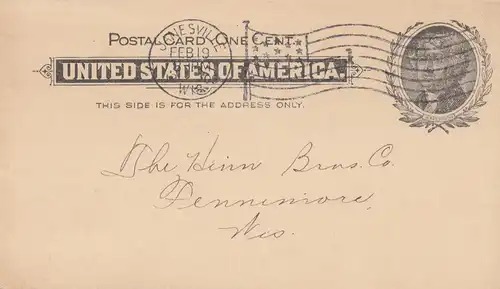 POSTAL CARD - ONE CENT.
JANESVILLE
FEB 19
WIS
UNITED STATES OF AMERICA.
THIS SIDE IS FOR THE ADDRESS ONLY.
The Heinn Bros. Co.
Fennimore,
Wis.